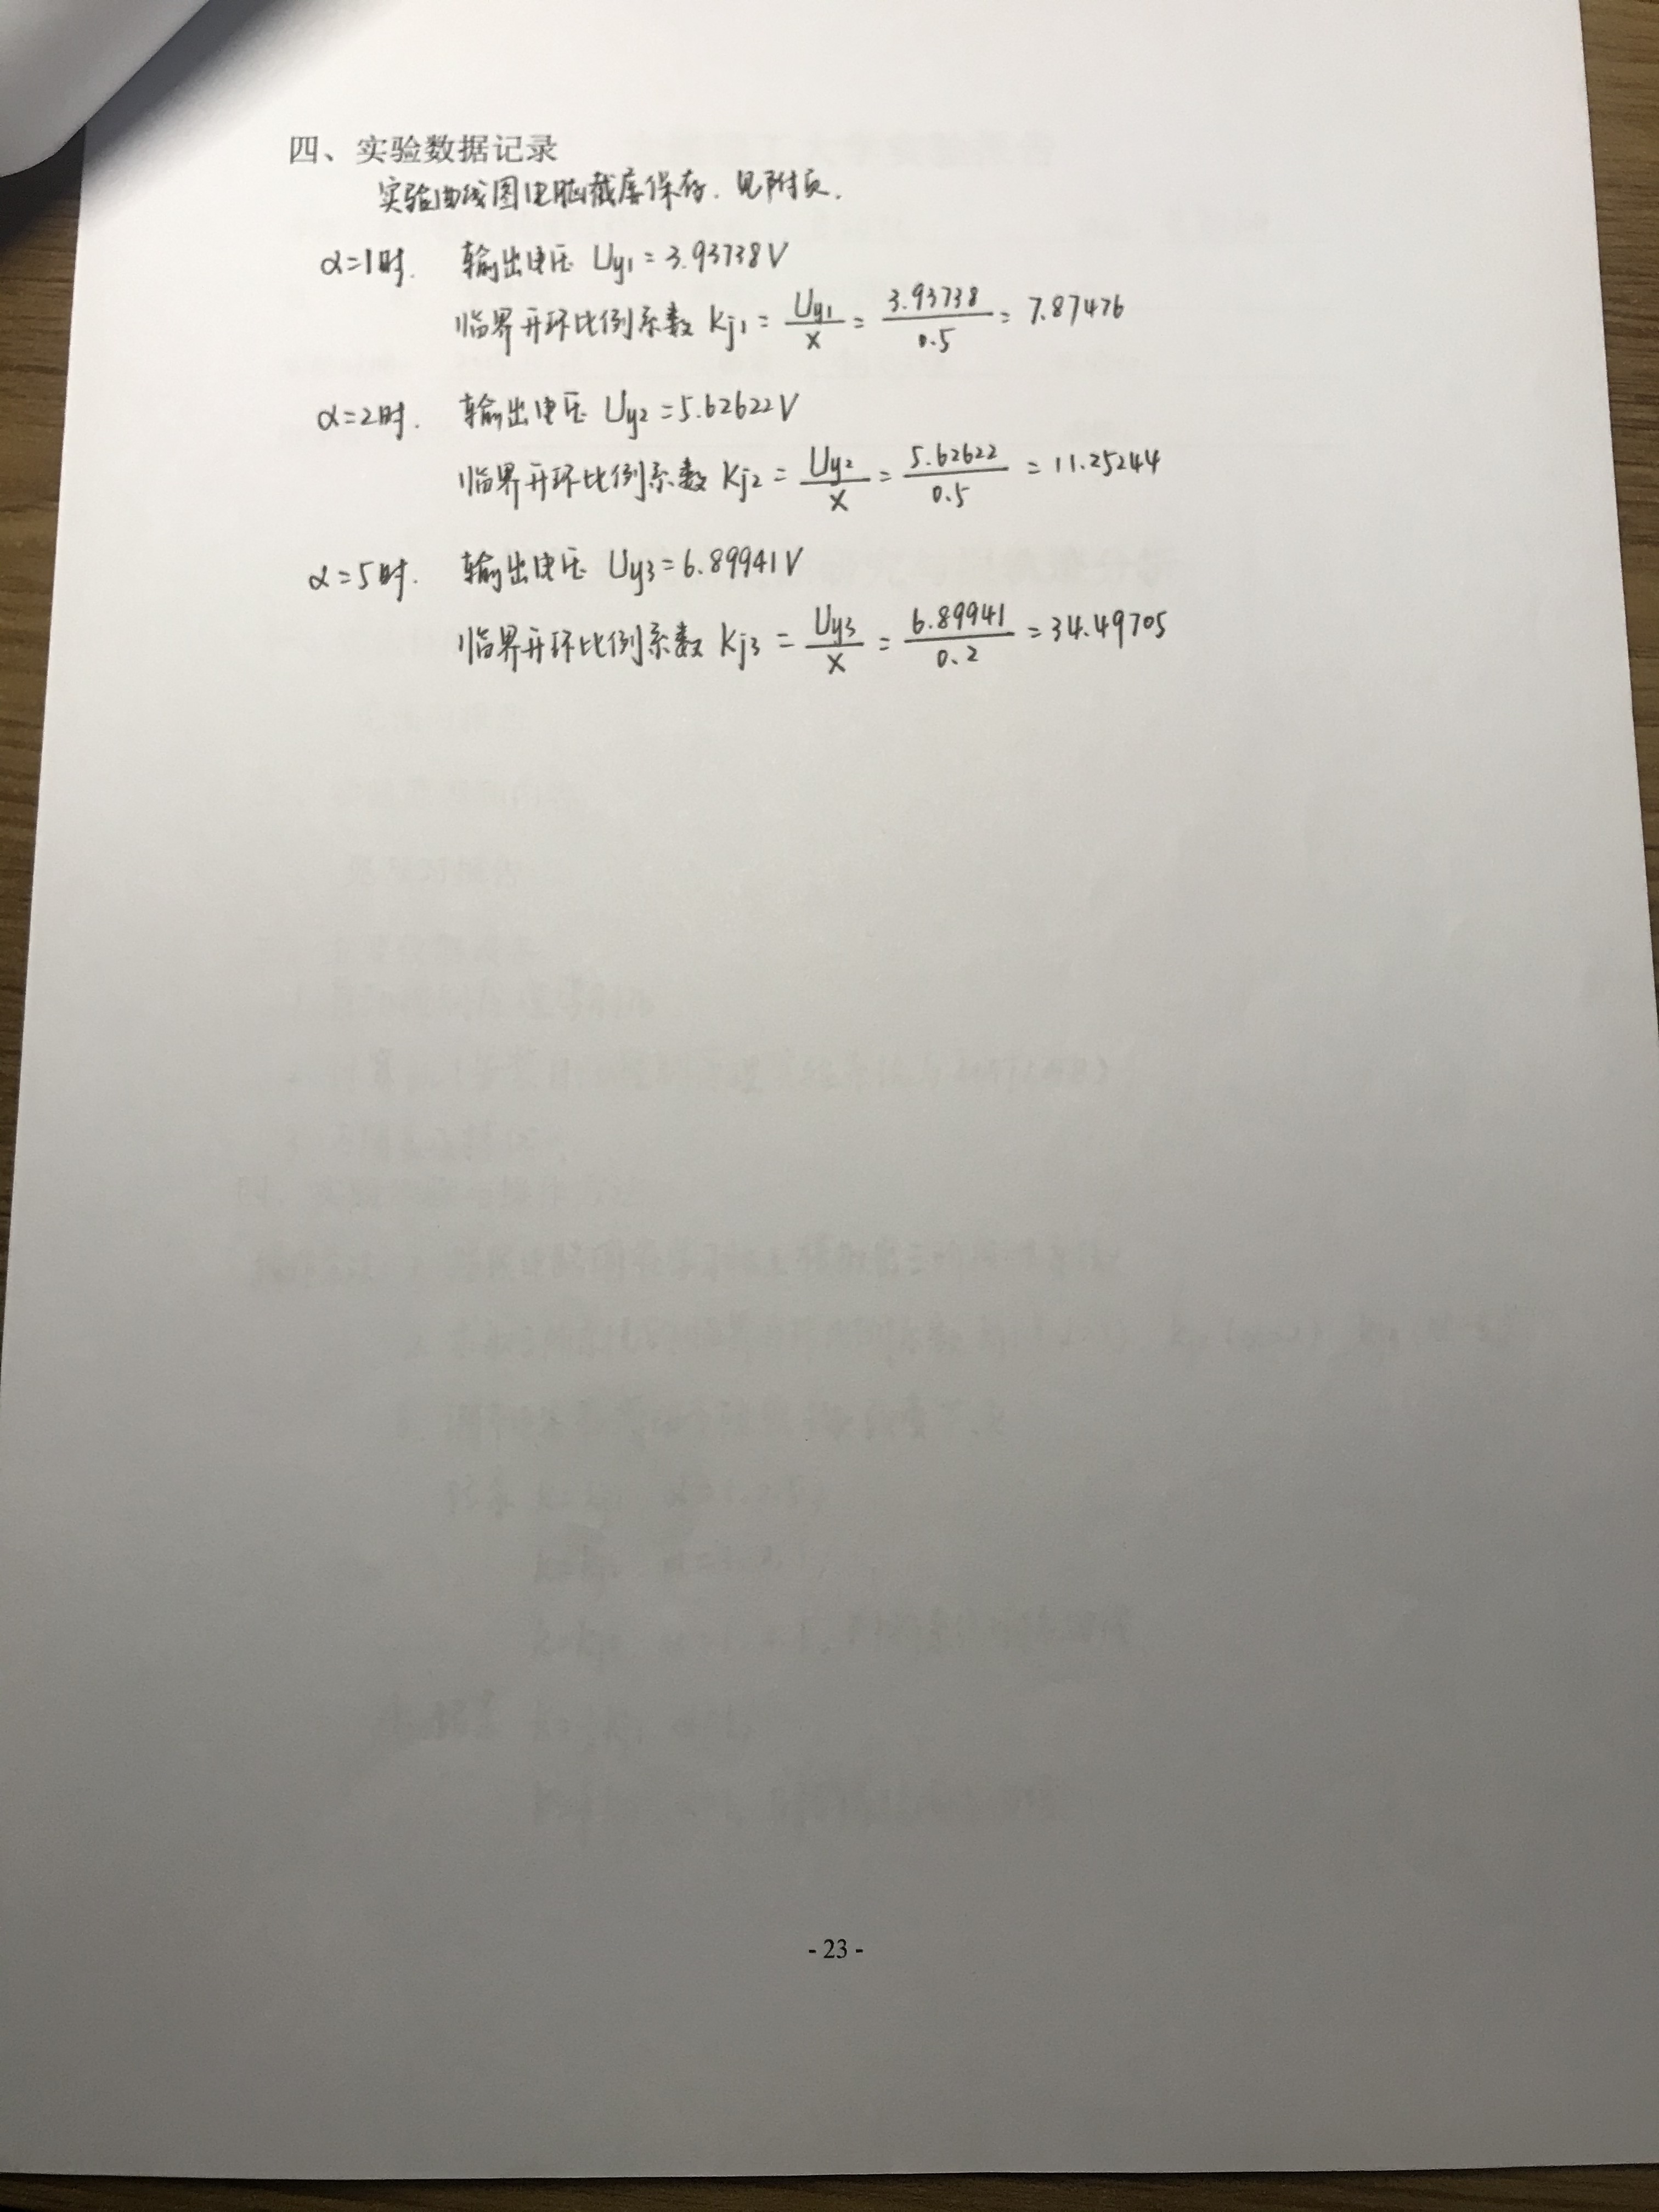 四、实验数据记录
实验曲线图电脑截屏保存. 见附页.
α=1时. 输出电压 Uy1 = 3.93738V
临界开环比例系数 Kj1 = Uy1/X = 3.93738/0.5 = 7.87476
α=2时. 输出电压 Uy2 = 5.62622V
临界开环比例系数 Kj2 = Uy2/X = 5.62622/0.5 = 11.25244
α=5时. 输出电压 Uy3 = 6.89941V
临界开环比例系数 Kj3 = Uy3/X = 6.89941/0.2 = 34.49705
- 23 -